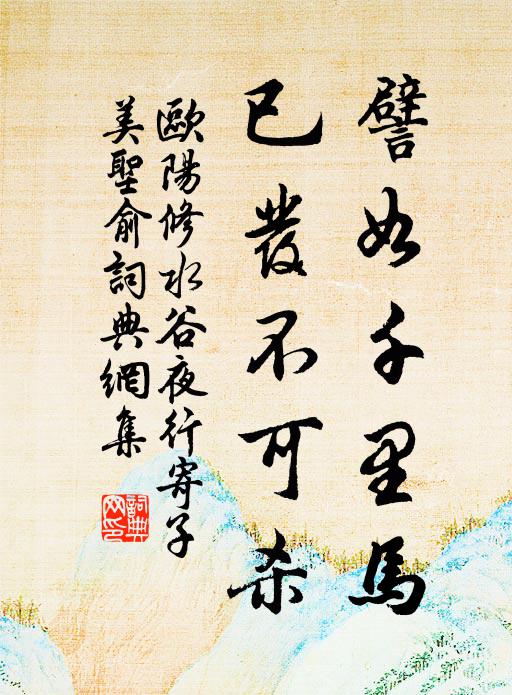 譬如千里馬
已發不可杀
歐陽修水谷夜行寄子
美聖俞詞典網集
詞典網印